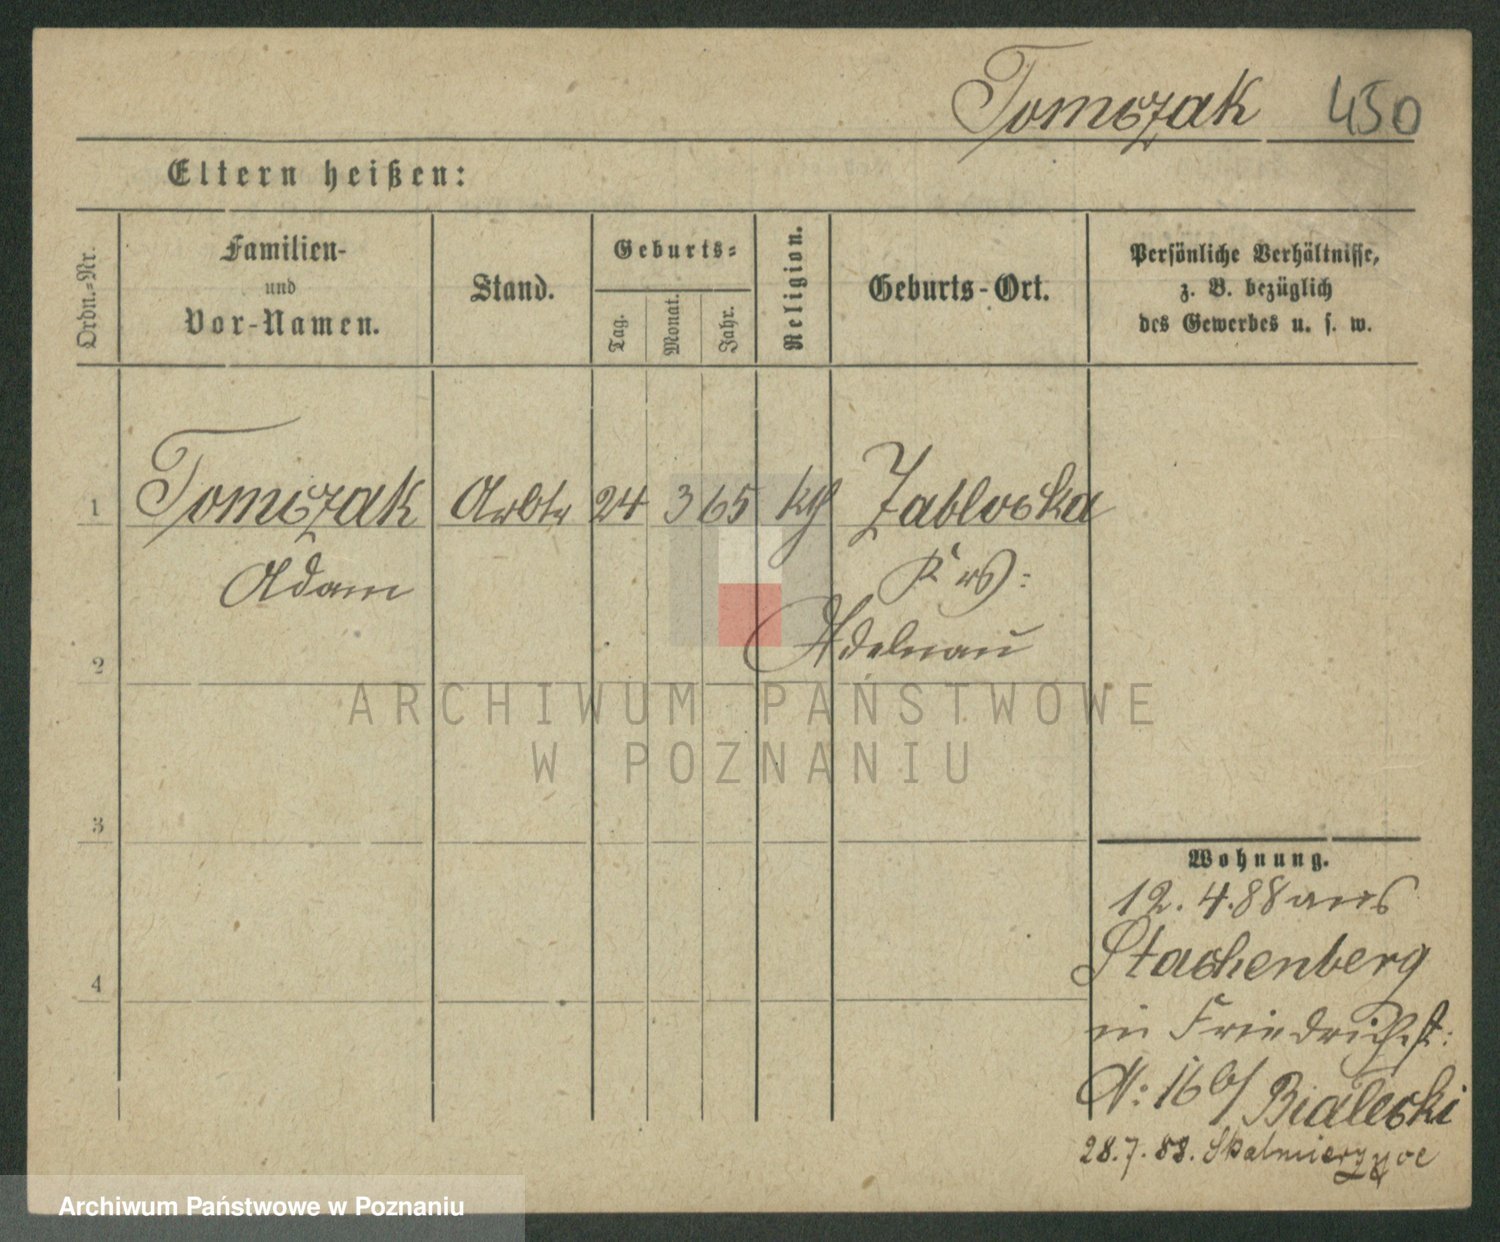 Tomczak 450
Eltern heißen:
Ordn.-Nr.
Familien-
und
Vor-Namen.
Stand.
Geburts-
Tag.
Monat.
Jahr.
Religion.
Geburts-Ort.
Persönliche Verhältnisse,
z. B. bezüglich
des Gewerbes u. s. w.
1 Tomczak Arbtr 24 3 65 kth Zablocka
Adam Krs:
Adelnau
2
ARCHIWUM PAŃSTWOWE
W POZNANIU
3
Wohnung.
12.4.88 aus
Stachenberg
4
in Friedrichst:
N: 16 b/ Bialecki
28.7.88. Skalmierzyce
Archiwum Państwowe w Poznaniu